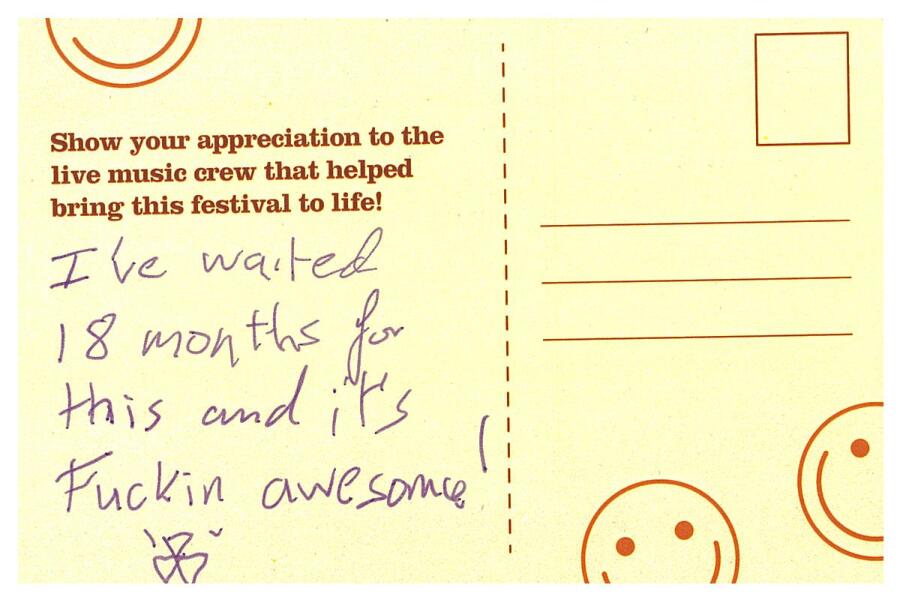 Show your appreciation to the
live music crew that helped
bring this festival to life!
I've waited
18 months for
this and it's
Fuckin awesome!